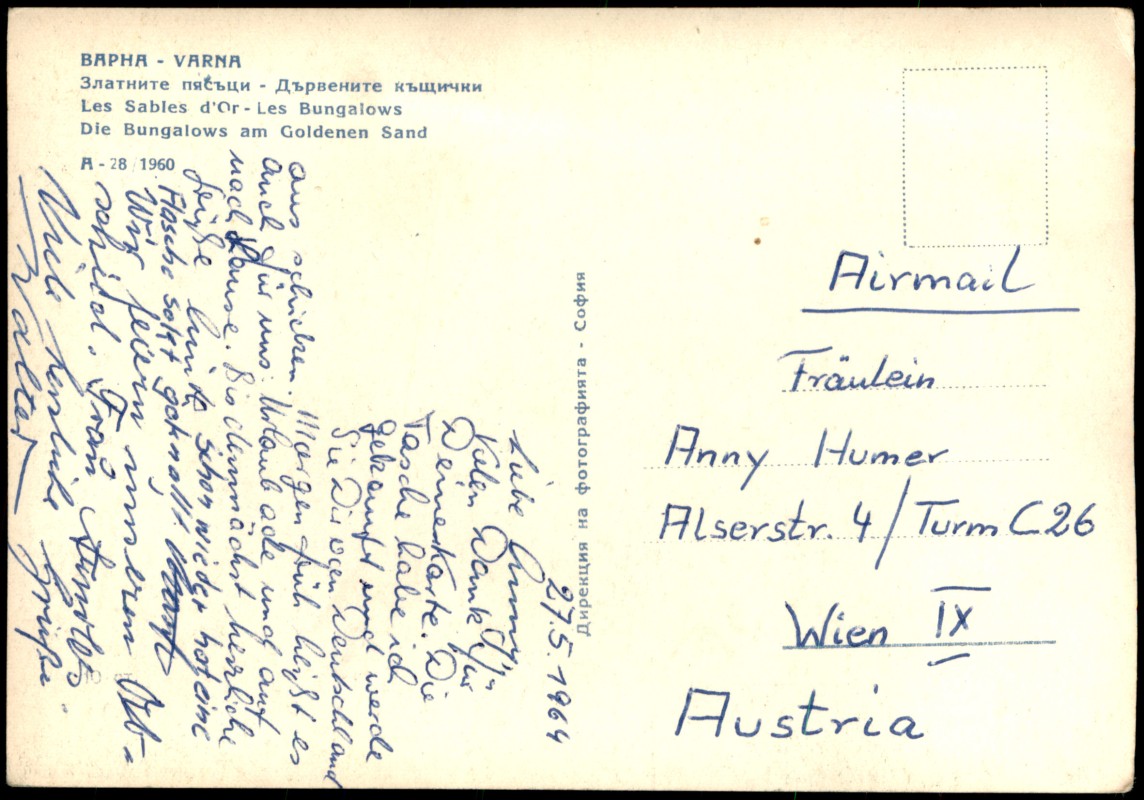 ВАРНА - VARNA
Златните пясъци - Дървените къщички
Les Sables d'Or - Les Bungalows
Die Bungalows am Goldenen Sand
А - 28 / 1960
Дирекция на фотографията - София
27.5.1964
Liebe Anny!
Vielen Dank für
Deine Karte. Die
Tasche habe ich
gekauft und werde
sie Dir von Deutschland
aus schicken. Morgen früh heißt es
auch für uns: Urlaub ade und auf
nach Hause. Bis demnächst herzliche
Grüße
Flasche Sekt
Wir feiern unseren Ab-
schied.
Viele herzliche Grüße.
Walter
10 ст.
Airmail
Fräulein
Anny Humer
Alserstr. 4/Turm C26
Wien IX
Austria